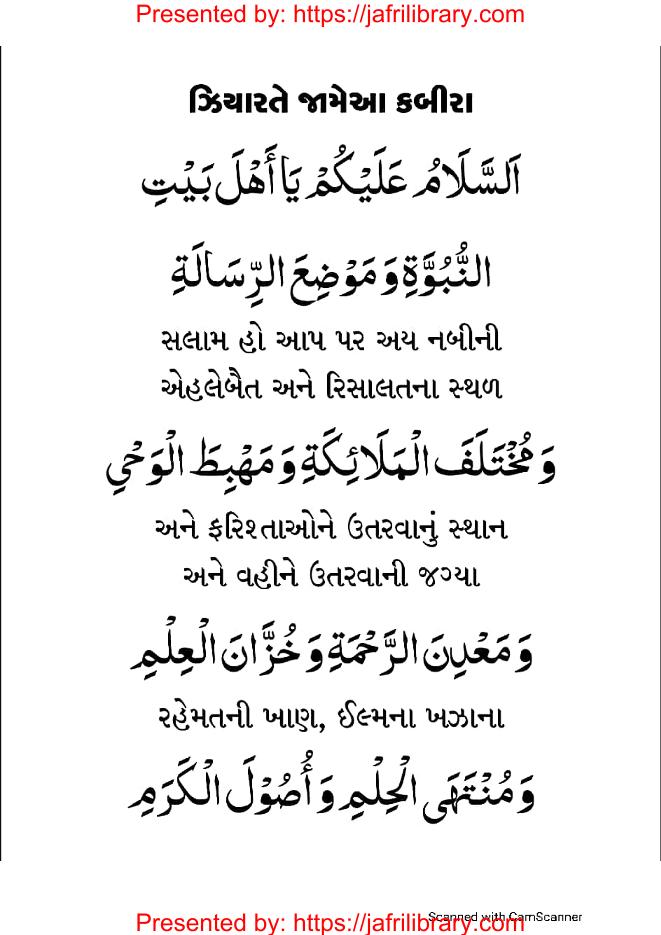 Presented by: https://jafrilibrary.com
ઝિયારતે જામેઆ કબીરા
اَلسَّلَامُ عَلَيْكُمْ يَا أَهْلَ بَيْتِ
النُّبُوَّةِ وَ مَوْضِعَ الرِّسَالَةِ
સલામ હો આપ પર અય નબીની
એહલેબૈત અને રિસાલતના સ્થળ
وَ مُخْتَلَفَ الْمَلَائِكَةِ وَ مَهْبِطَ الْوَحْيِ
અને ફરિશ્તાઓને ઉતરવાનું સ્થાન
અને વહીને ઉતરવાની જગ્યા
وَ مَعْدِنَ الرَّحْمَةِ وَ خُزَّانَ الْعِلْمِ
રહેમતની ખાણ, ઈલ્મના ખઝાના
وَ مُنْتَهَى الْحِلْمِ وَ أُصُوْلَ الْكَرَمِ
Scanned with CamScanner
Presented by: https://jafrilibrary.com